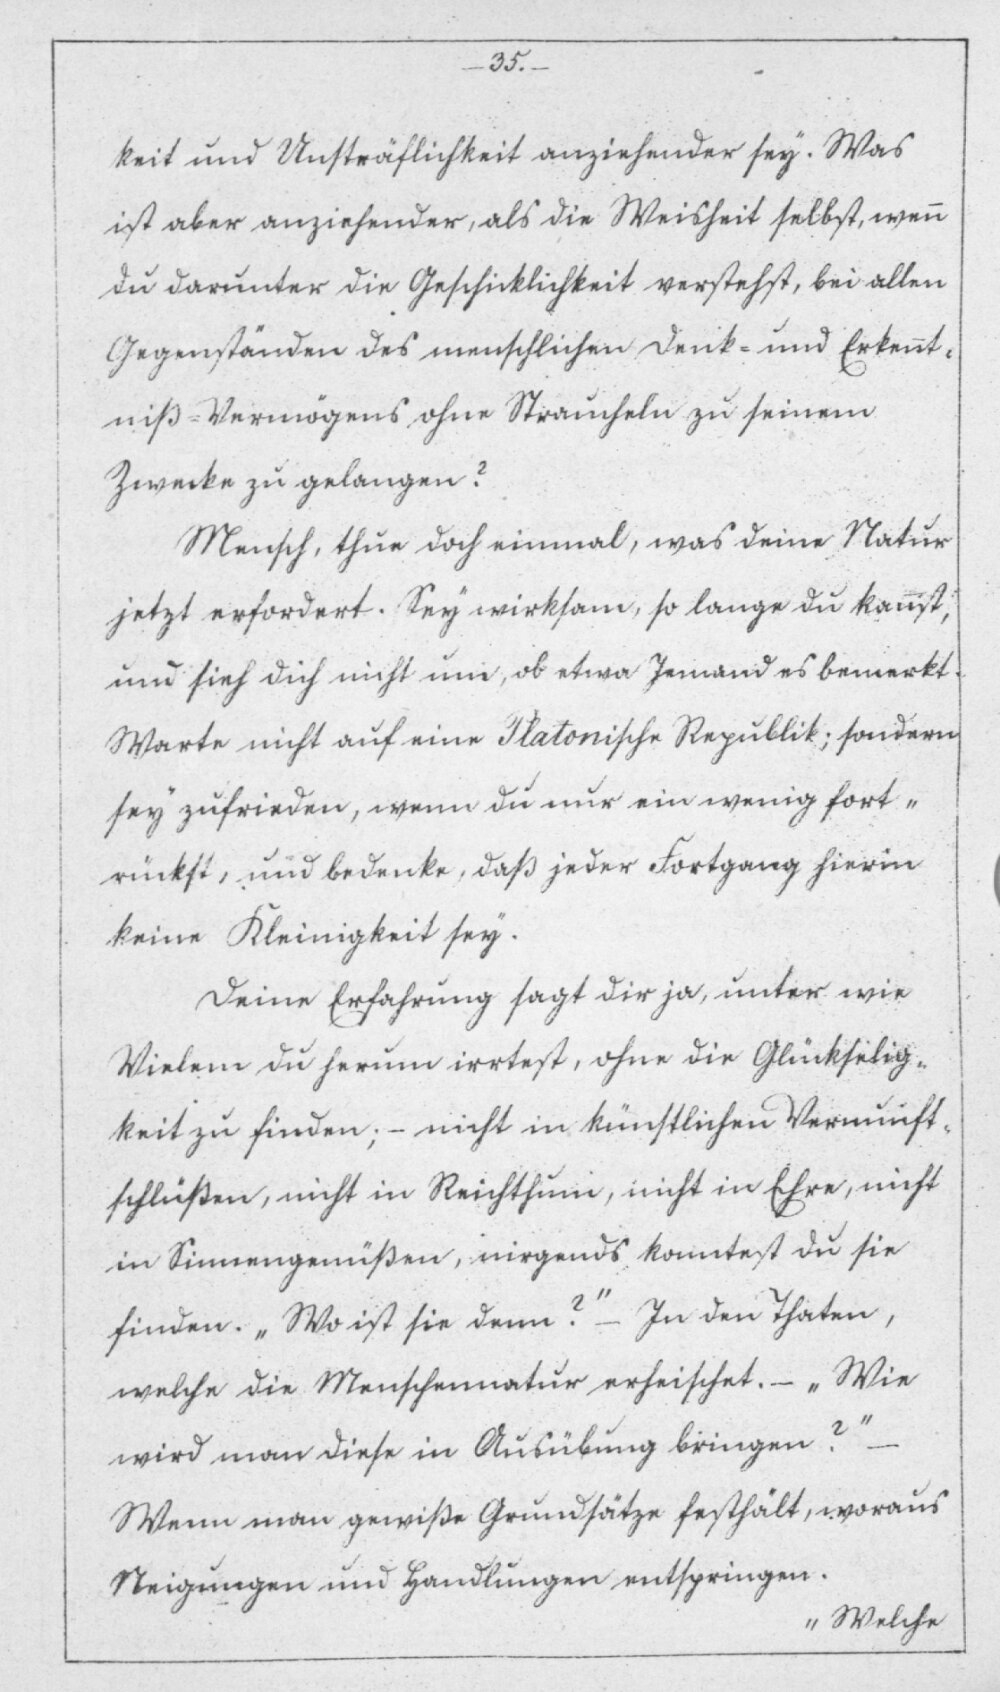 — 35. —
keit und Unsträflichkeit anziehender sey. Was
ist aber anziehender, als die Weisheit selbst, wen̄
du darunter die Geschicklichkeit verstehst, bei allen
Gegenständen des menschlichen Denk- und Erken̄t-
niß-Vermögens ohne Straucheln zu seinem
Zwecke zu gelangen?
Mensch, thue doch einmal, was deine Natur
jetzt erfordert. Sey wirksam, so lange du kan̄st,
und sieh dich nicht um, ob etwa Jemand es bemerkt.
Warte nicht auf eine Platonische Republik; sondern
sey zufrieden, wenn du nur ein wenig fort-
rückst, und bedenke, daß jeder Fortgang hierin
keine Kleinigkeit sey.
Deine Erfahrung sagt dir ja, unter wie
Vielem du herum irrtest, ohne die Glückselig-
keit zu finden; – nicht in künstlichen Vernunft-
schlüßen, nicht in Reichthum, nicht in Ehre, nicht
in Sinnengenüßen, nirgends konntest du sie
finden. „Wo ist sie denn?" – In den Thaten,
welche die Menschennatur erheischet. – „Wie
wird man diese in Ausübung bringen?" –
Wenn man gewiße Grundsätze festhält, woraus
Neigungen und Handlungen entspringen.
„Welche